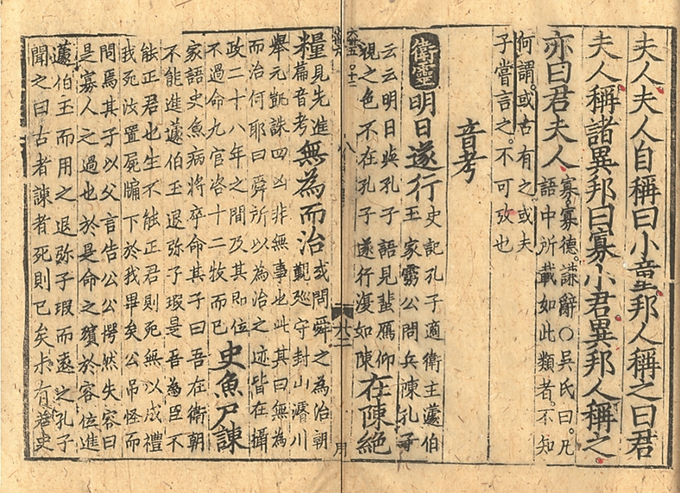 夫人夫人自稱曰小童邦人稱之曰君
夫人稱諸異邦曰寡小君異邦人稱之
亦曰君夫人
寡寡德謙辭○吳氏曰凡
語中所載如此類者不知
何謂或古有之或夫
子嘗言之不可攷也
音考
衛靈
明日遂行
史記孔子適衛主蘧伯
玉家靈公問兵陳孔子
云云明日與孔子語見蜚鴈仰
視之色不在孔子遂行復如陳
在陳絕
糧
見先進
篇音考
無為而治
或問舜之為治朝
覲巡守封山濬川
舉元凱誅四凶非無事也此其曰無為
而治何耶曰舜所以為治之迹皆在攝
政二十八年之間及其即位
不過命九官咨十二牧而已
史魚尸諫
家語史魚病將卒命其子曰吾在衛朝
不能進蘧伯玉退弥子瑕是吾為臣不
能正君也生不能正君則死無以成禮
我死汝置屍牖下於我畢矣公吊怪而
問焉其子以父言告公公愕然失容曰
是寡人之過也於是命之殯於客位進
蘧伯玉而用之退弥子瑕而遠之孔子
聞之曰古者諫者死則已矣未有若史